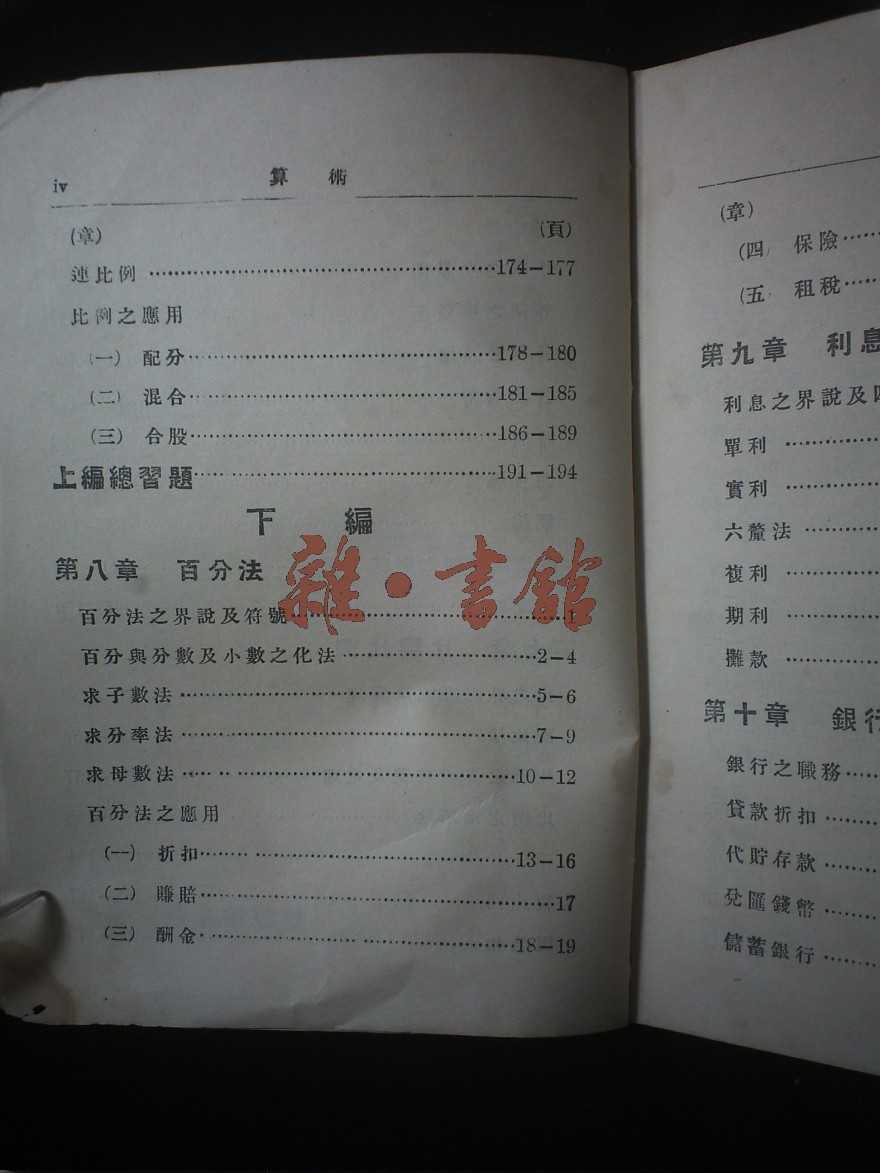 iv 算術
(章) (頁)
連比例 174–177
比例之應用
(一) 配分 178–180
(二) 混合 181–185
(三) 合股 186–189
上編總習題 191–194
下編
第八章 百分法
百分法之界說及符號 1
百分與分數及小數之化法 2–4
求子數法 5–6
求分率法 7–9
求母數法 10–12
百分法之應用
(一) 折扣 13–16
(二) 賺賠 17
(三) 酬金 18–19
雜·書館
(章)
(四) 保險
(五) 租稅
第九章 利息
利息之界說及
單利
實利
六釐法
複利
期利
攤款
第十章 銀行
銀行之職務
貸款折扣
代貯存款
兌匯錢幣
儲蓄銀行